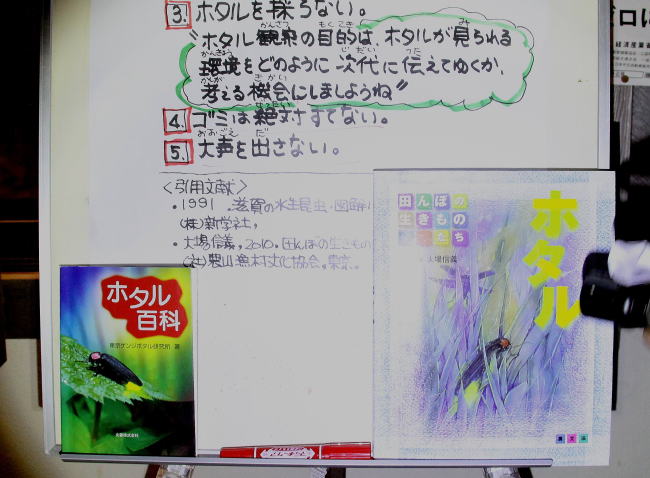 3. ホタルを採らない。
"ホタル観察の目的は、ホタルが見られる
環境をどのように次代に伝えてゆくか、
考える機会にしましょうね"
4. ゴミは絶対すてない。
5. 大声を出さない。
<引用文献>
・1991.滋賀の水生昆虫・図解
(株)新学社,
・大場信義,2010.田んぼの生きもの
(社)農山漁村文化協会,東京。
ホタル
百科
東京ゲンジボタル研究所 著
田んぼの
生きもの
たち
大場信義
ホタル
農文協
経済産業省